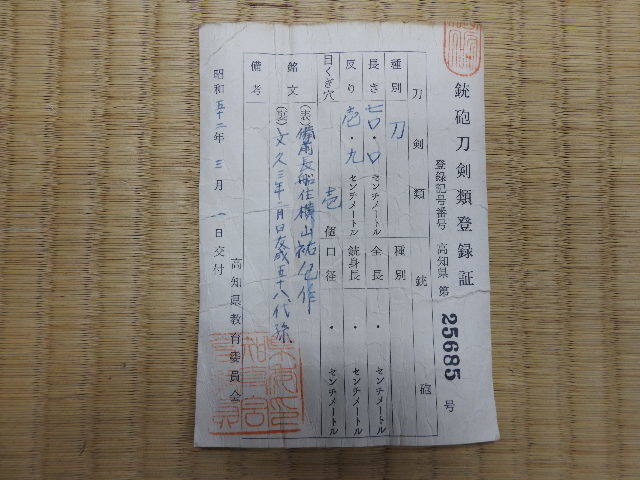 銃砲刀剣類登録証
登録記号番号 高知県 第 25685 号
刀剣類 銃砲
種別 刀 種別
長さ 七〇・〇 センチメートル 全長 ・ センチメートル
反り 壱・九 センチメートル 銃身長 ・ センチメートル
目くぎ穴 壱 個 口径 ・ センチメートル
銘文 (表) 備前長船住横山祐包作
(裏) 文久三年二月日友成五十八代孫
備考
昭和五十二年 三月 一日交付
高知県教育委員会